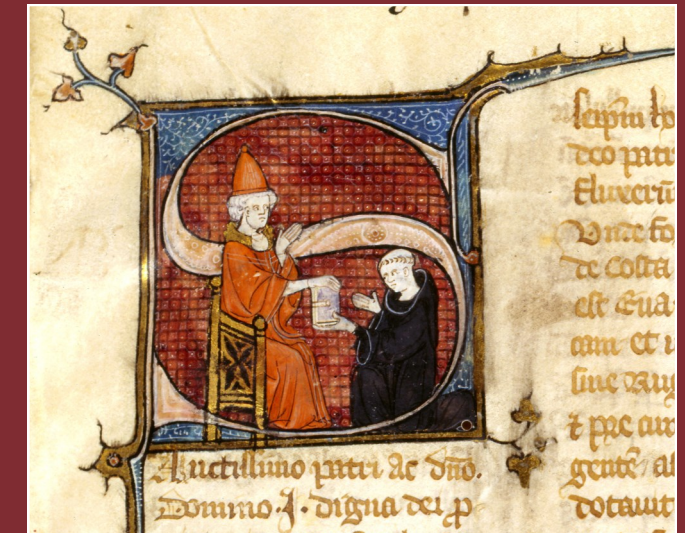 S
Anctissimo patri ac dño.
Domino .J. digna dei p
deo patr
fluxerũ
Vnde fo
de costa
est Eua
cam et
sine rug
⁊ pre cur
gentẽ al
dotauit